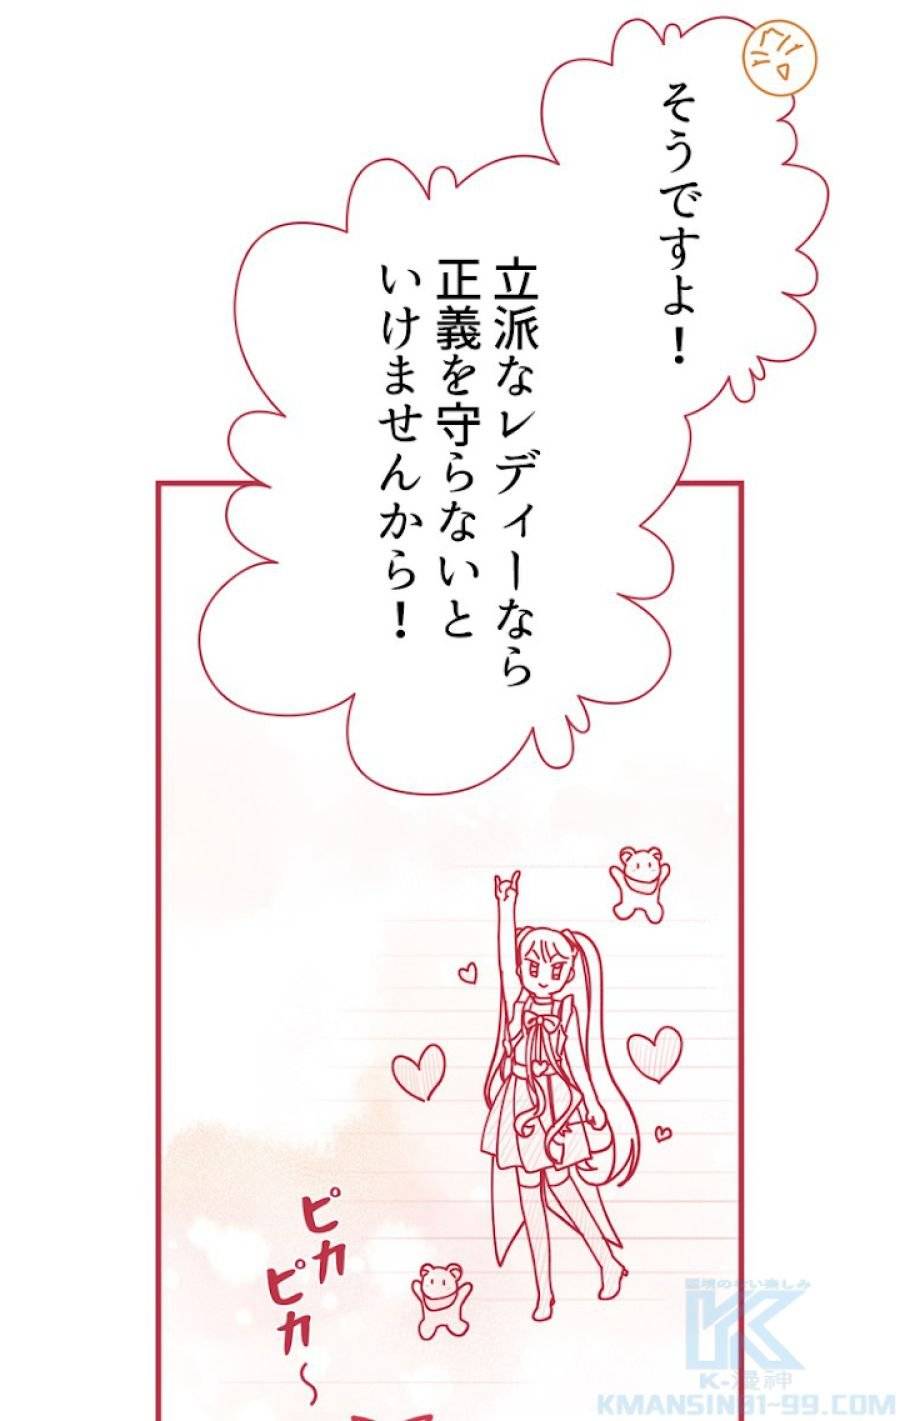 そうですよ！
立派なレディーなら
正義を守らないと
いけませんから！
ピカ
ピカ〜
K-漫神
KMANSIN01-99.COM